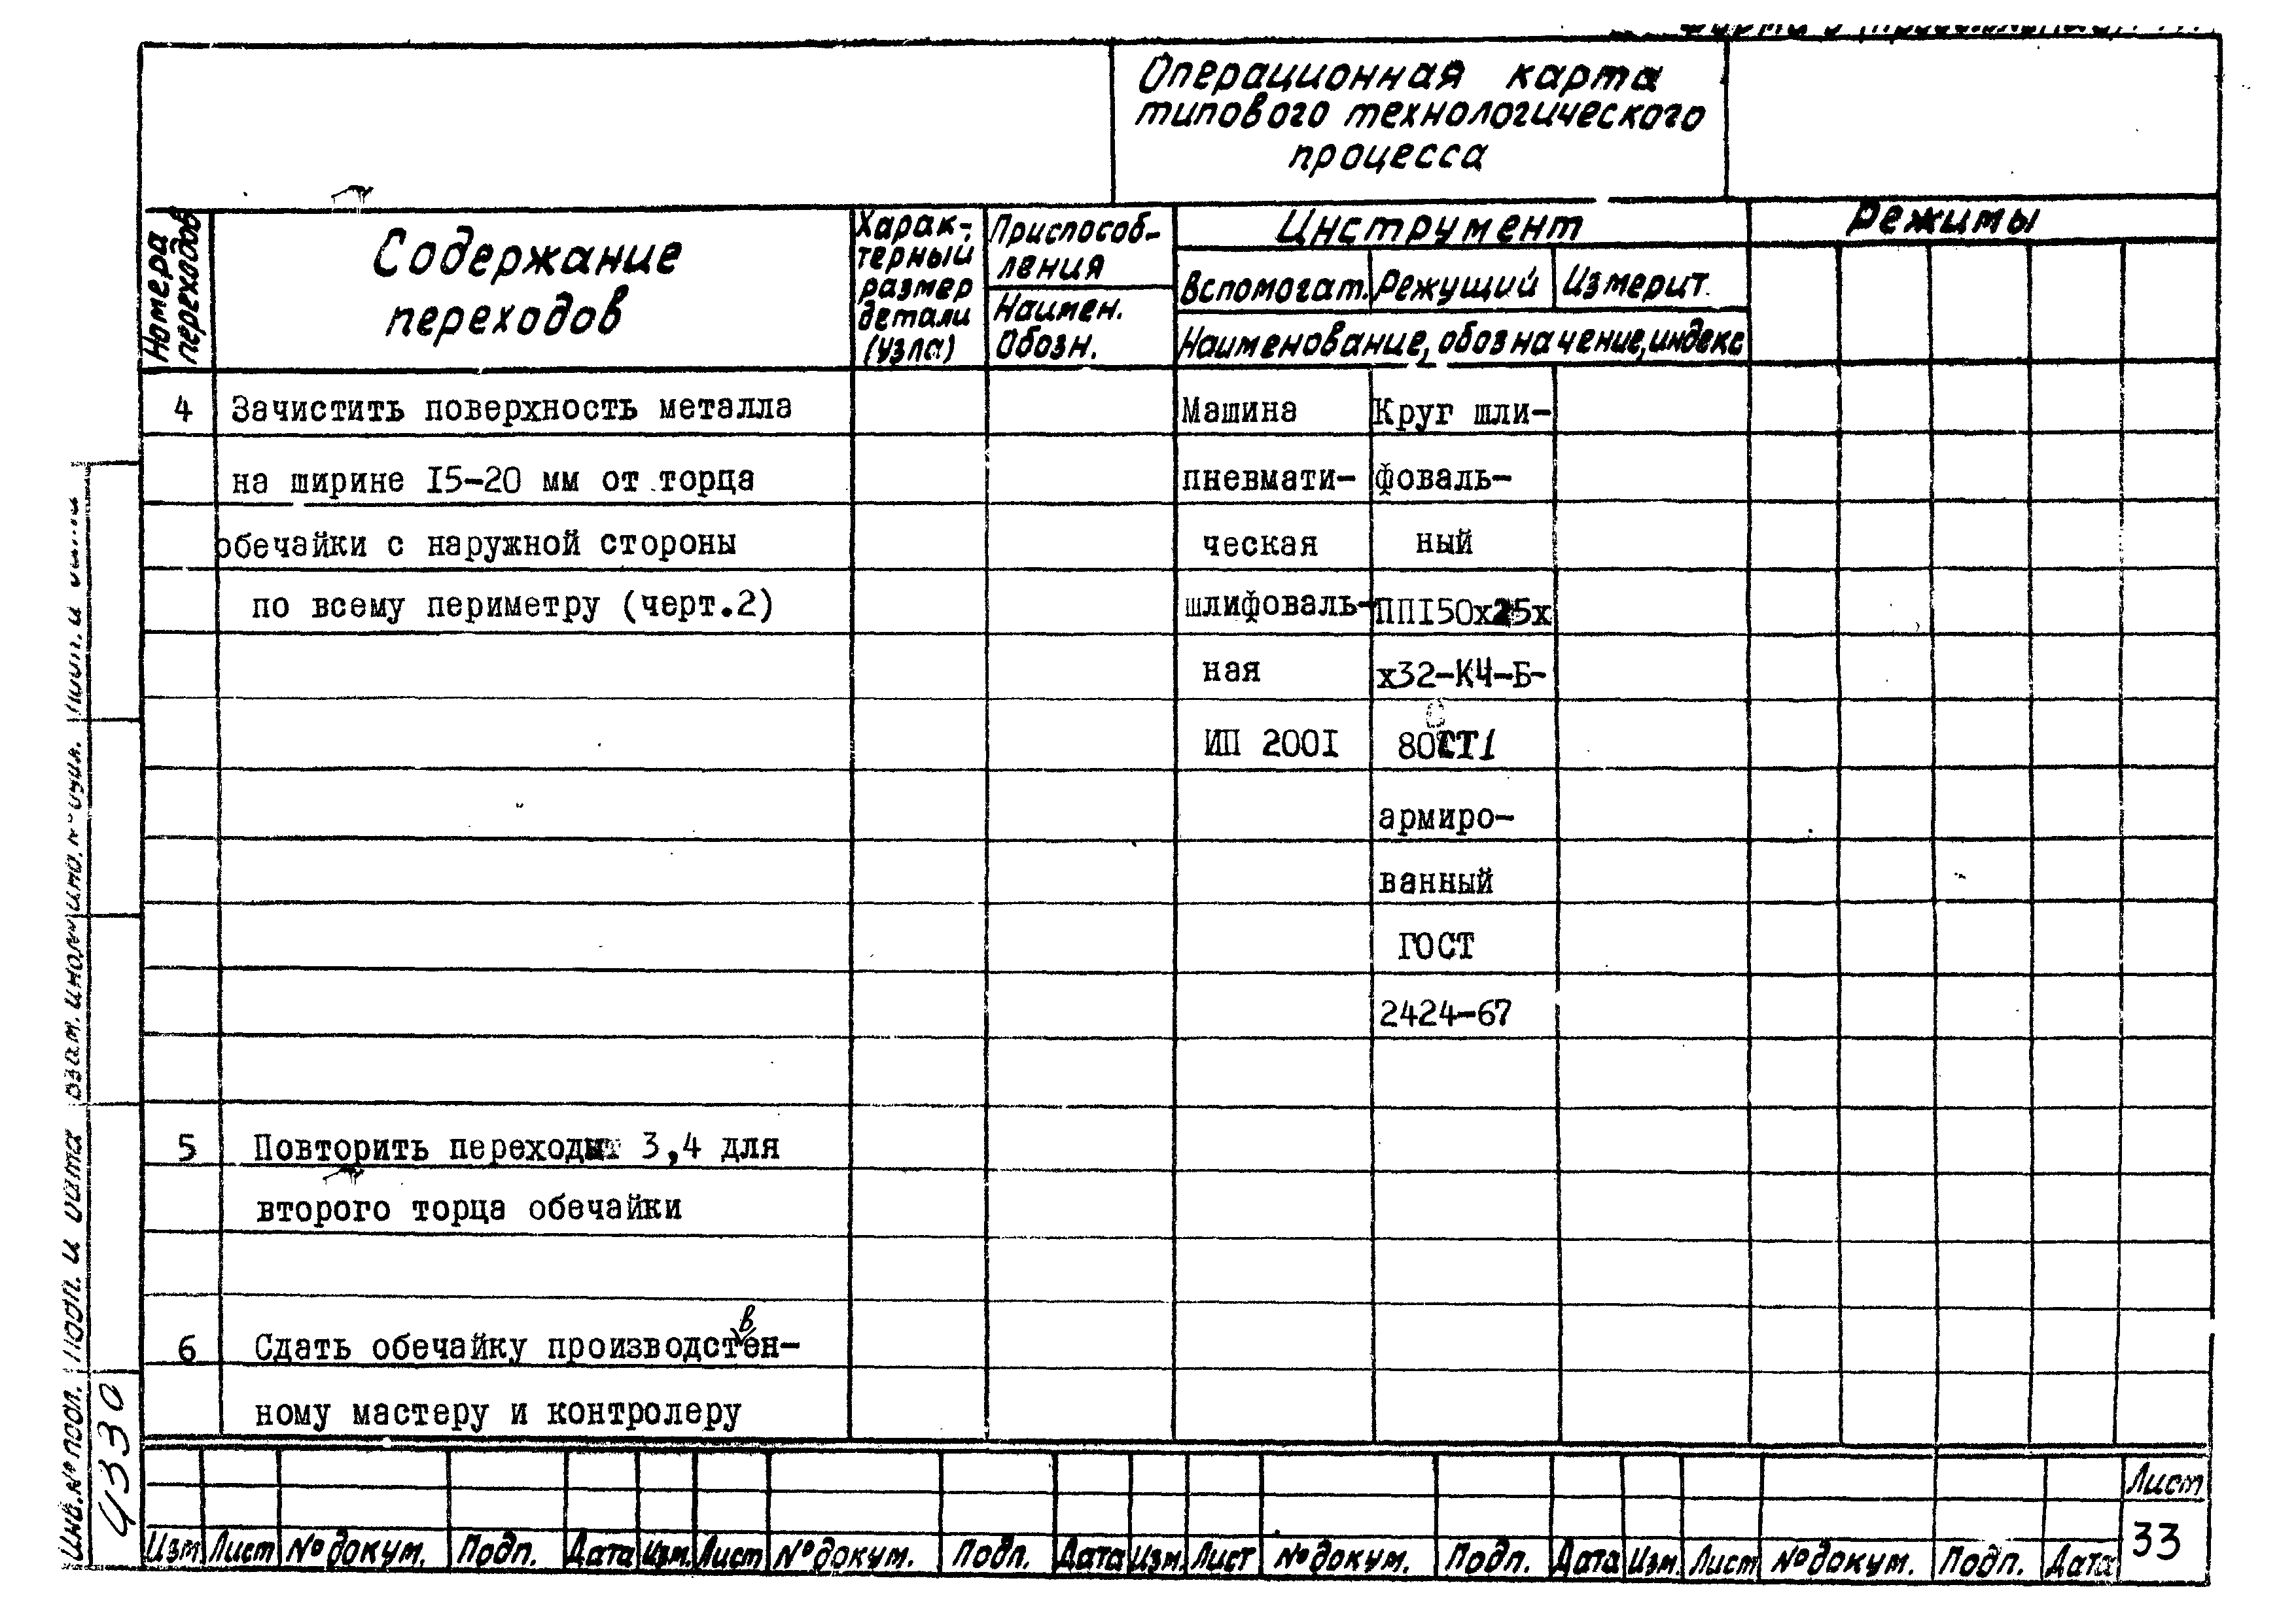 Операционная карта
типового технологического
процесса
Номера
переходов
Содержание
переходов
Харак-
терный
размер
детали
(узла)
Приспособ-
ления
Наимен.
Обозн.
Инструмент
Режимы
Вспомогат. Режущий Измерит.
Наименование, обозначение, индекс
4 Зачистить поверхность металла Машина Круг шли-
на ширине I5-20 мм от торца пневмати- фоваль-
обечайки с наружной стороны ческая ный
по всему периметру (черт.2) шлифоваль- ППI50х25х
ная х32-КЧ-Б-
ИП 200I 80СТ1
армиро-
ванный
ГОСТ
2424-67
5 Повторить переходы 3,4 для
второго торца обечайки
6 Сдать обечайку производстен-
в
ному мастеру и контролеру
Лист
33
Изм Лист № докум. Подп. Дата Изм. Лист № докум. Подп. Дата Изм. Лист № докум. Подп. Дата Изм. Лист № докум. Подп. Дата
Инв. № подл. Подп. и дата Взам. инв. №
4330